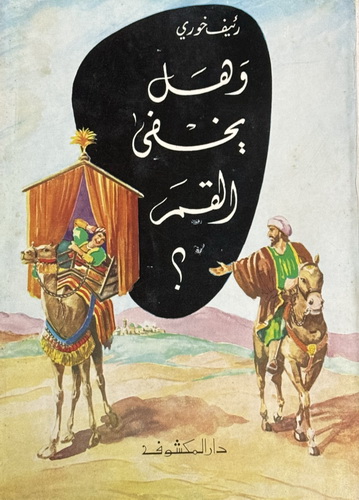 رئيف خوري
وهل
يخفى
القمر
؟
دار المكشوف